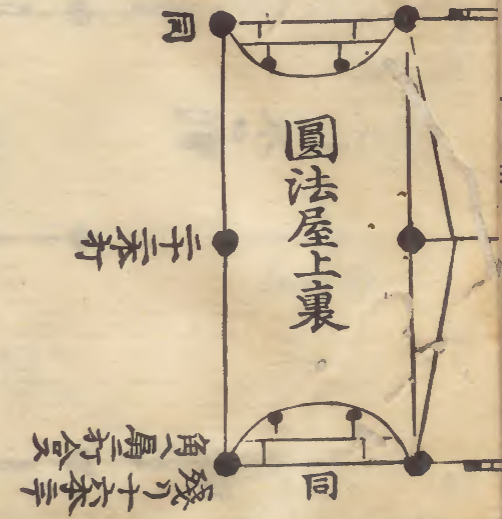 同
圓法屋上裏
二十二本打
同
殘リ十六本ニテ
角ハ扇ニ打合ス